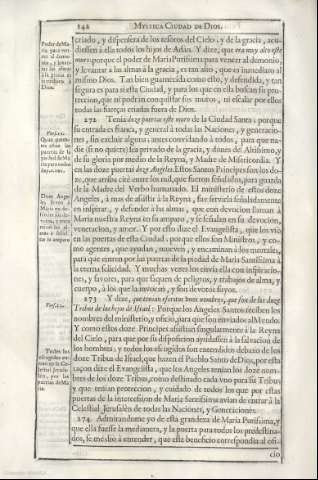 142 MYSTICA CIUDAD DE DIOS.
criado, y dispensera de los tesoros del Cielo, y de la gracia, acu-
diessen à ella todos los hijos de Adan. Y dize, que era muy alto este
muro; porque el poder de Maria Purissima para vencer al demonio,
y levantar a las almas à la gracia, es tan alto, que es inmediato al
mismo Dios. Tan bien guarnecida como esto, y defendida, y tan
segura es para si esta Ciudad, y para los que en ella buscan su pro-
teccion, que ni podràn conquistar sus muros, ni escalar por ellos
todas las fuerças criadas fuera de Dios.
272 Tenia doze puertas este muro de la Ciudad Santa; porque
su entrada es franca, y general à todas las Naciones, y generacio-
nes, sin excluir alguna; antes convidando à todos, para que na-
die (si no quiere) sea privado de la gracia, y dones del Altissimo, y
de su gloria por medio de la Reyna, y Madre de Misericordia. Y
en las doze puertas doze Angeles. Estos Santos Principes son los do-
ze, que arriba citè entre los mil, que fueron señalados, para guarda
de la Madre del Verbo humanado. El ministerio de estos doze
Angeles, à mas de assistir à la Reyna, fue servirla señaladamente
en inspirar, y defender à las almas, que con devocion llaman à
Maria nuestra Reyna en su amparo, y se señalan en su devocion,
veneracion, y amor. Y por esto dize el Evangelista, que los viò
en las puertas de esta Ciudad, porque ellos son Ministros, y co-
mo agentes, que ayudan, mueven, y encaminan à los mortales,
para que entren por las puertas de la piedad de Maria Santissima à
la eterna felicidad. Y muchas vezes los envia ella con inspiracio-
nes, y favores, para que saquen de peligros, y trabajos de alma, y
cuerpo, à los que la invocan, y son devotos suyos.
273 Y dize, que tenian escritos unos nombres, que son de los doze
Tribus de los hijos de Israel; Porque los Angeles Santos reciben los
nombres del ministerio, y oficio, para que son enviados al Mundo.
Y como estos doze Principes assistian singularmente à la Reyna
del Cielo, para que por su disposicion ayudassen à la salvacion de
los hombres; y todos los escogidos son entendidos debaxo de los
doze Tribus de Israel, que hazen el Pueblo Santo de Dios, por esta
raçon dize el Evangelista, que los Angeles tenian los doze nom-
bres de los doze Tribus, como destinado cada vno para su Tribu;
y que tenian proteccion, y cuidado de todos los que por estas
puertas de la intercession de Maria Santissima avian de entrar à la
Celestial Jerusalèn de todas las Naciones, y Generaciones.
274 Admirandome yo de esta grandeza de Maria Purissima, y
que ella fuesse la medianera, y la puerta para todos los predestina-
dos, se me diò à entender, que este beneficio correspondia al ofi-
cio